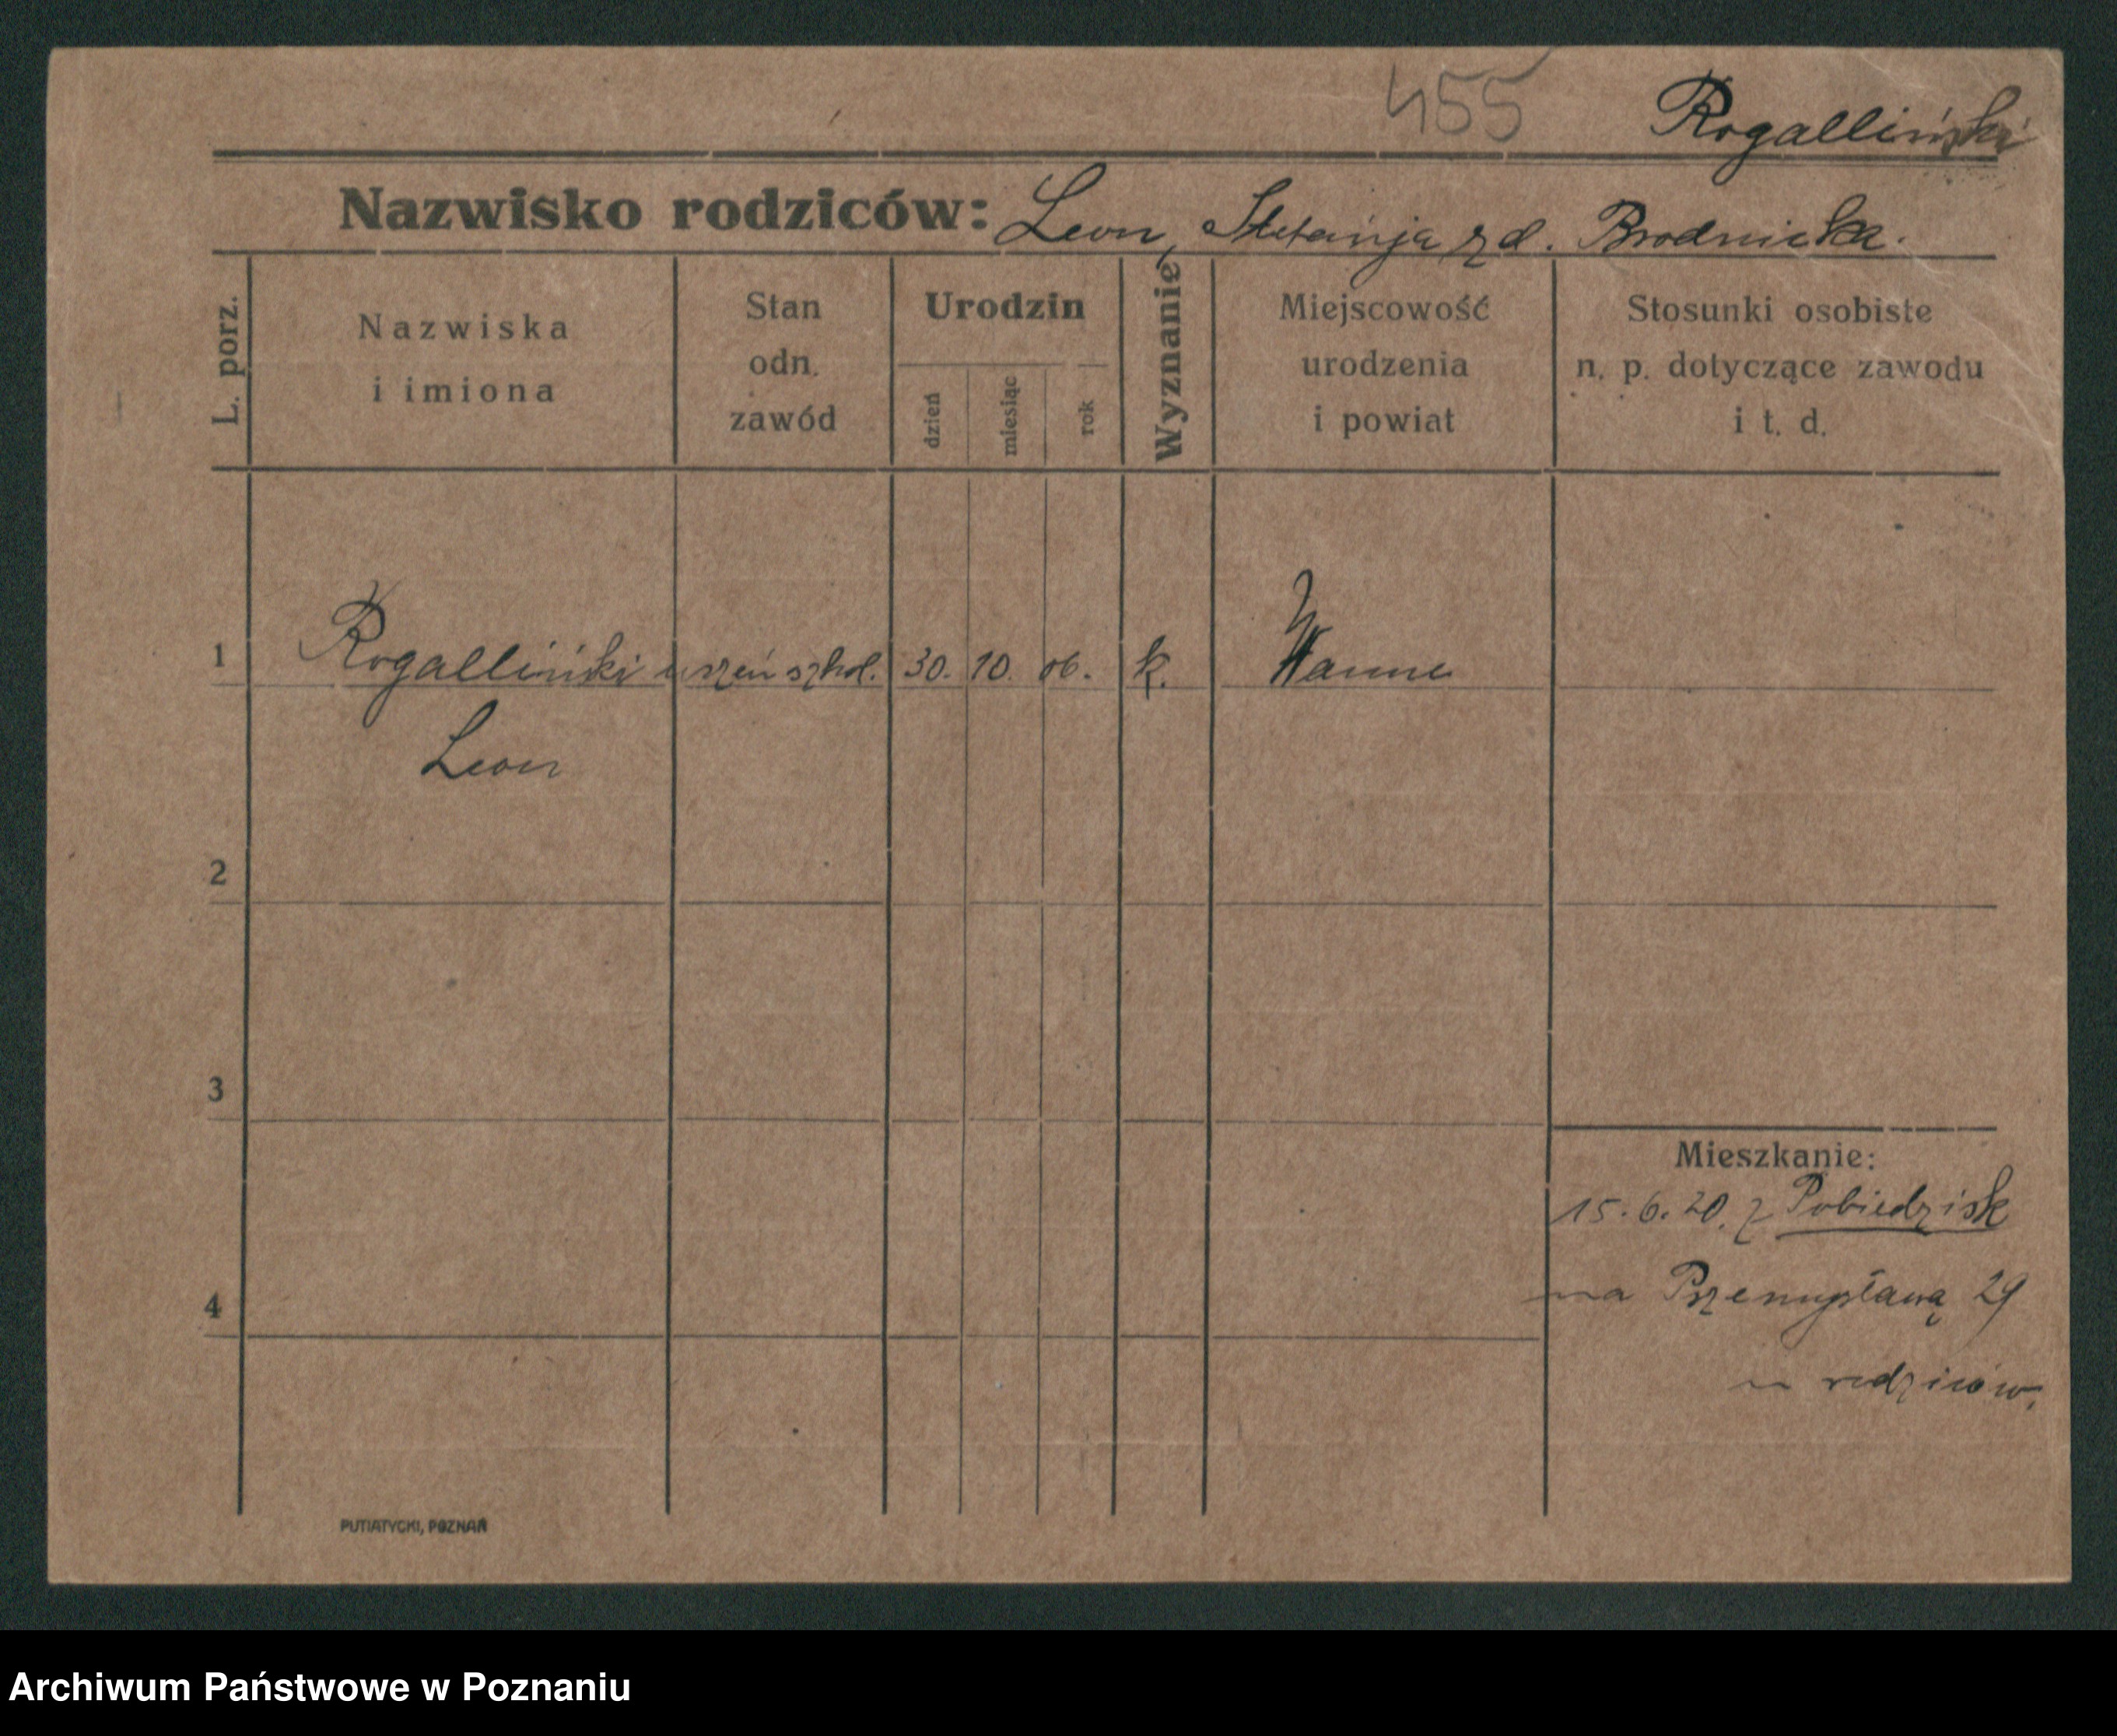 455 Rogalliński
Nazwisko rodziców: Leon, Stefańja z d. Brodnicka.
L. porz.
Nazwiska
i imiona
Stan
odn.
zawód
Urodzin
dzień
miesiąc
rok
Wyznanie
Miejscowość
urodzenia
i powiat
Stosunki osobiste
n. p. dotyczące zawodu
i t. d.
1 Rogalliński uczeń szkol. 30. 10. 06. k. Wanne
Leon
2
3
Mieszkanie:
15.6.20. z Pobiedzisk
4
na Przemysławą 29
u rodziców.
PUTIATYCKI, POZNAŃ
Archiwum Państwowe w Poznaniu